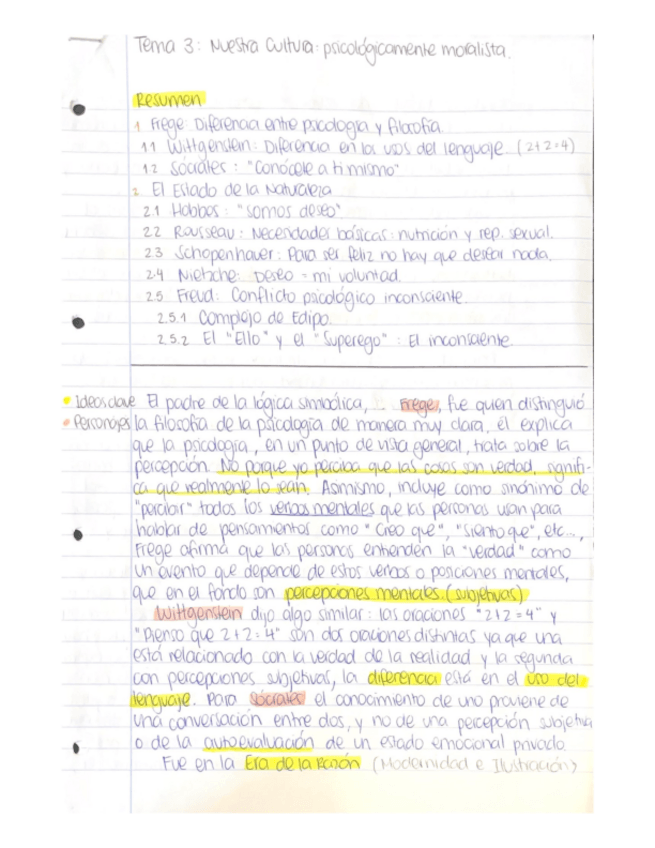 Tema 3: Nuestra Cultura: psicológicamente moralista.
Resumen
1 Frege: Diferencia entre psicología y filosofía
1.1 Wittgenstein: Diferencia en los usos del lenguaje. (2+2=4)
1.2 Sócrates: "Conócete a ti mismo"
2. El Estado de la Naturaleza
2.1 Hobbes: "somos deseo"
2.2 Rousseau: Necesidades básicas: nutrición y rep. sexual.
2.3 Schopenhauer: Para ser feliz no hay que desear nada.
2.4 Nietzche: Deseo = mi voluntad.
2.5 Freud: Conflicto psicológico inconsciente.
2.5.1 Complejo de Edipo.
2.5.2 El "Ello" y el "Superego": El inconsciente.
Ideas clave
Personajes
El padre de la lógica simbólica, Frege, fue quien distinguió
la filosofía de la psicología de manera muy clara, él explica
que la psicología, en un punto de vista general, trata sobre la
percepción. No porque yo perciba que las cosas son verdad, signifi-
ca que realmente lo sean. Asimismo, incluye como sinónimo de
"percibir" todos los verbos mentales que las personas usan para
hablar de pensamientos como "Creo que", "siento que", etc...,
Frege afirma que las personas entienden la "verdad" como
un evento que depende de estos verbos o posiciones mentales,
que en el fondo son percepciones mentales. (subjetivas)
Wittgenstein dijo algo similar: las oraciones "2+2=4" y
"Pienso que 2+2=4" son dos oraciones distintas ya que una
está relacionado con la verdad de la realidad y la segunda
con percepciones subjetivas, la diferencia está en el uso del
lenguaje. Para Sócrates el conocimiento de uno proviene de
una conversación entre dos, y no de una percepción subjetiva
o de la autoevaluación de un estado emocional privado.
Fue en la Era de la Razón (Modernidad e Ilustración)